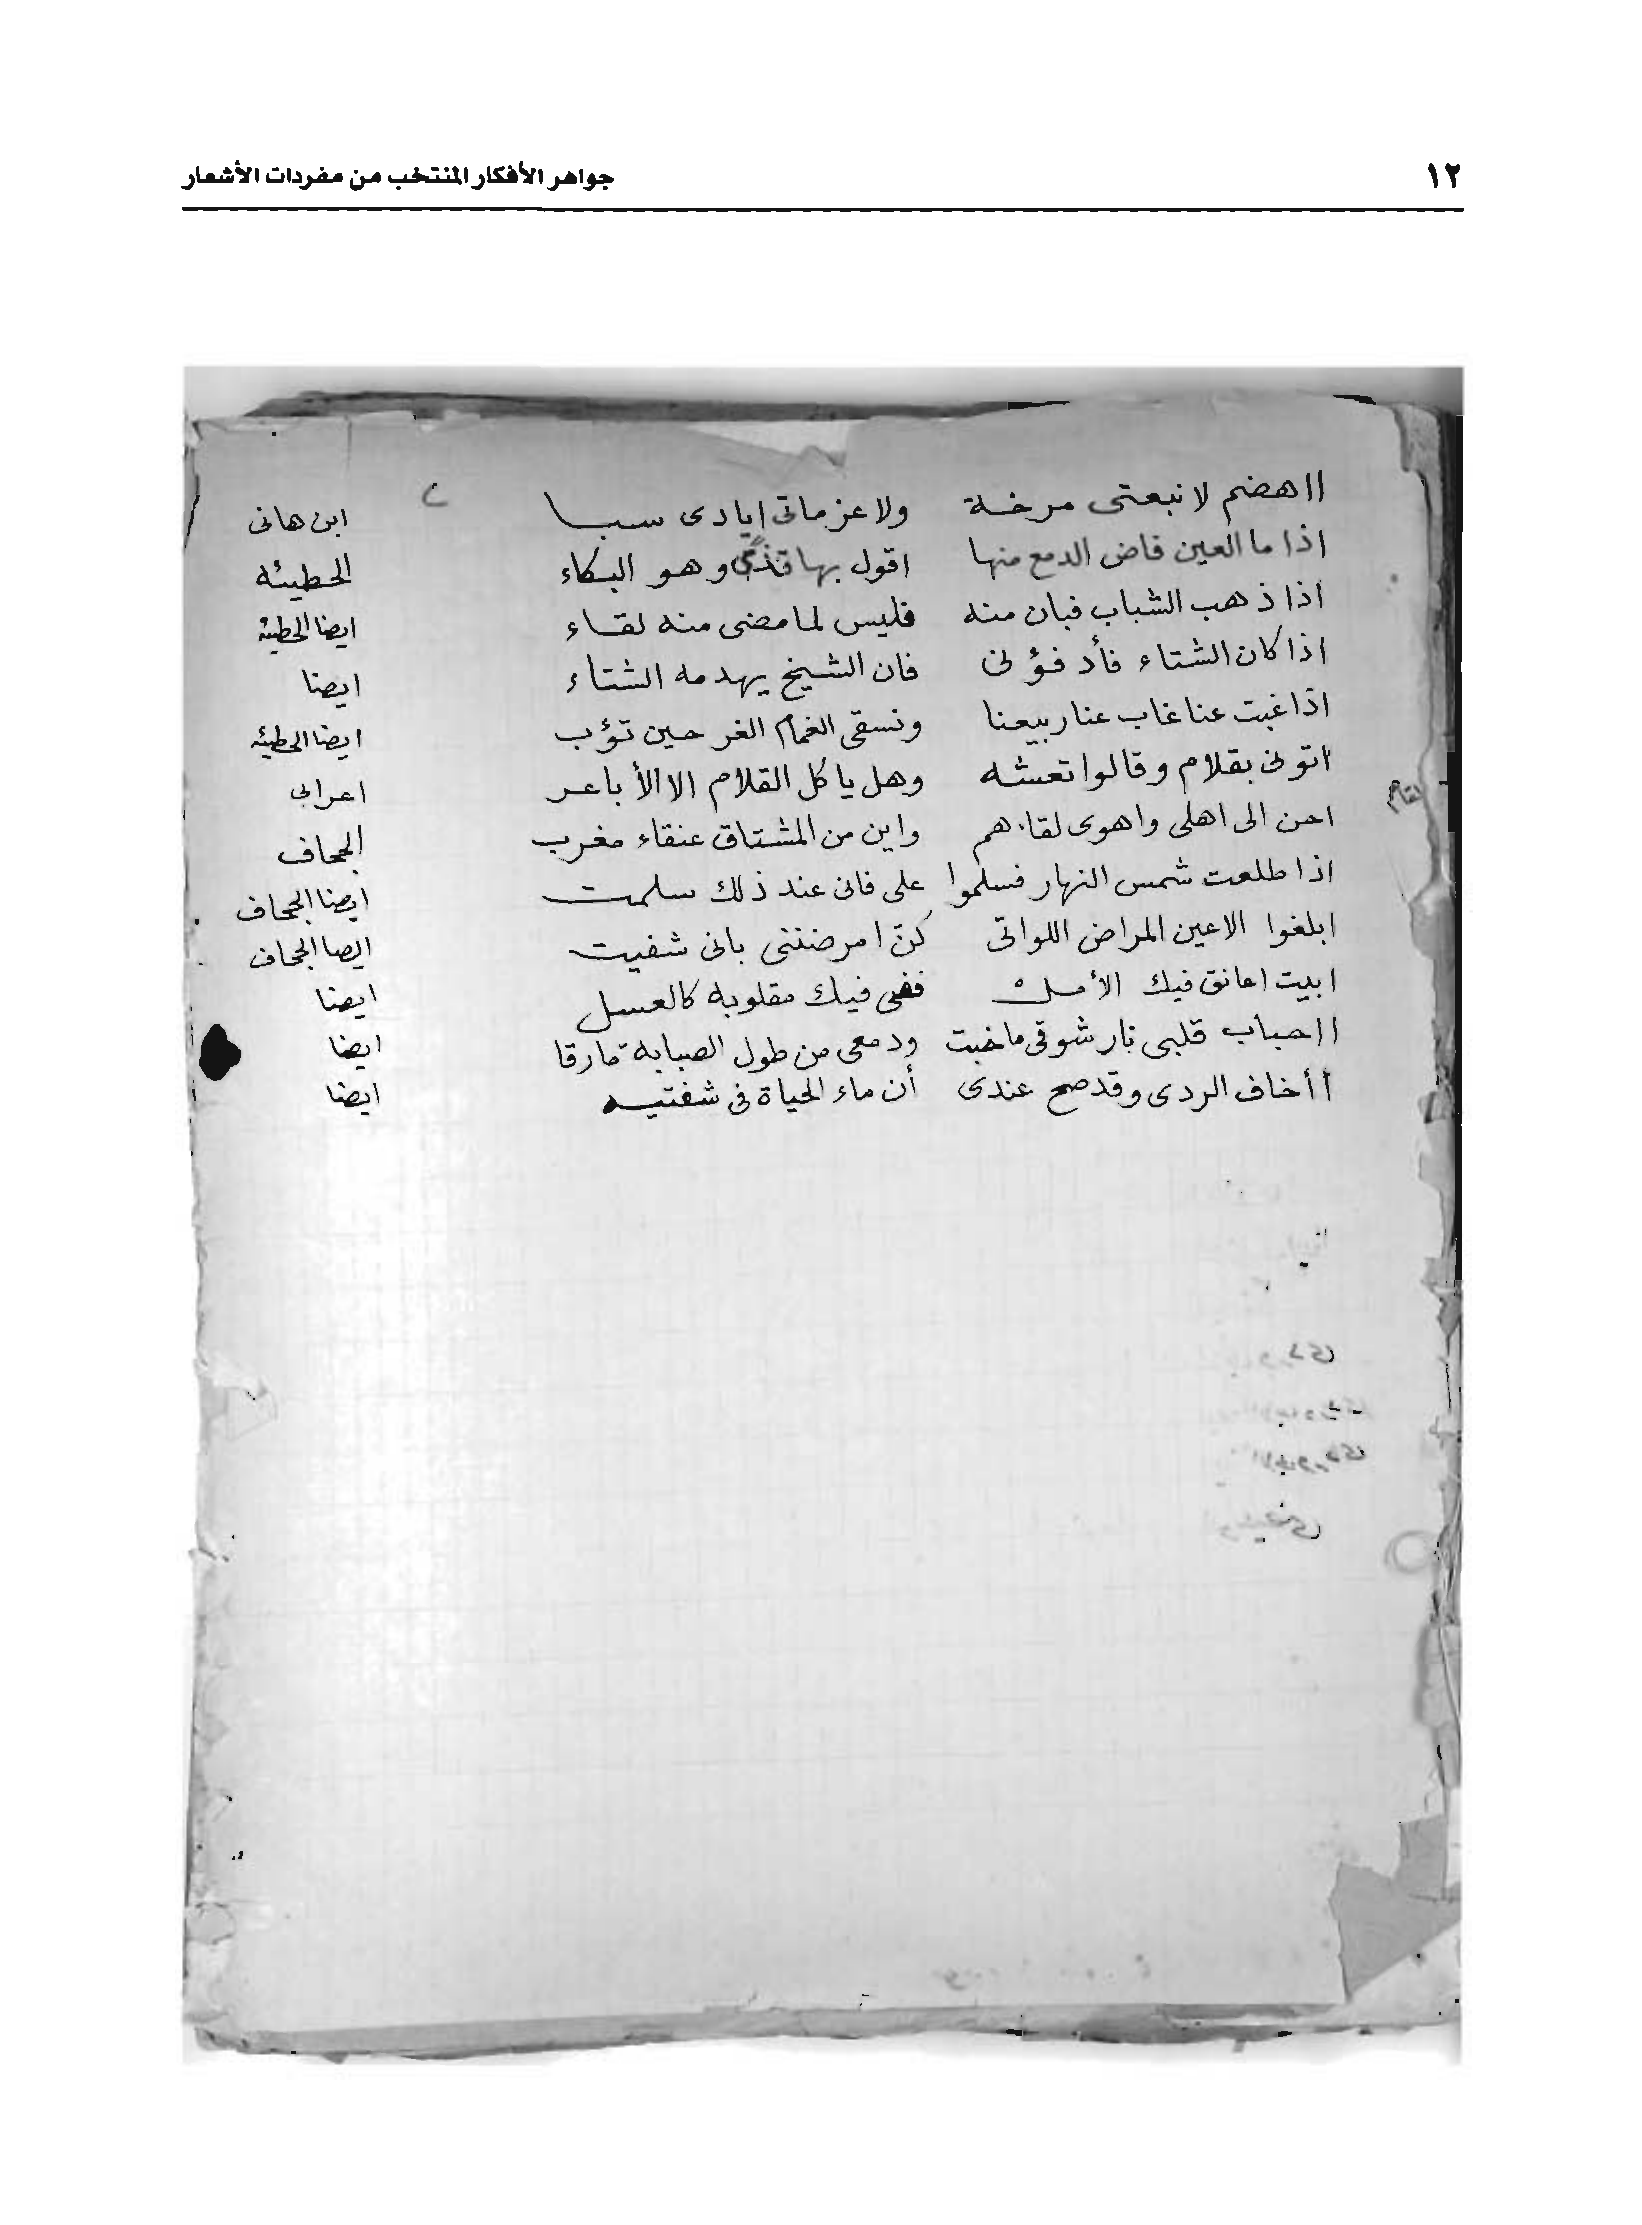 ١٢ جواهر الأفكار المنتخب من مفردات الأشعار
ااهضم لا نبعتى مرخة ولا عزماتى ايادى سبا ابن هانى
اذا ما العين فاض الدمع منها اقول بها قذى وهو البكاء الحطيئه
اذا ذهب الشباب فبان منه فليس لما مضى منه لقاء ايضا الحطيئه
اذا كان الشتاء فأدفؤنى فان الشيخ يهدمه الشتاء ايضا
اذا غبت عنا غاب عنا ربيعنا ونسقى الغمام الغر حين تؤب ايضا الحطيئه
اتونى بقلام وقالوا تعشه وهل ياكل القلام الا الأباعر اعرابى
احن الى اهلى واهوى لقاءهم واين من المشتاق عنقاء مغرب الجحاف
اذا طلعت شمس النهار فسلموا على فانى عند ذلك سلمت ايضا الجحاف
ابلغوا الاعين المراض اللواتى كنّ امرضننى بانى شفيت ايضا الجحاف
ابيت اعانق فيك الأمل ففى فيك مقلوبه كالعسل ايضا
ااحباب قلبى نار شوقى ما خبت ودمعى من طول الصبابة مارقا ايضا
أأخاف الردى وقد صح عندى أن ماء الحياة فى شفتيه ايضا